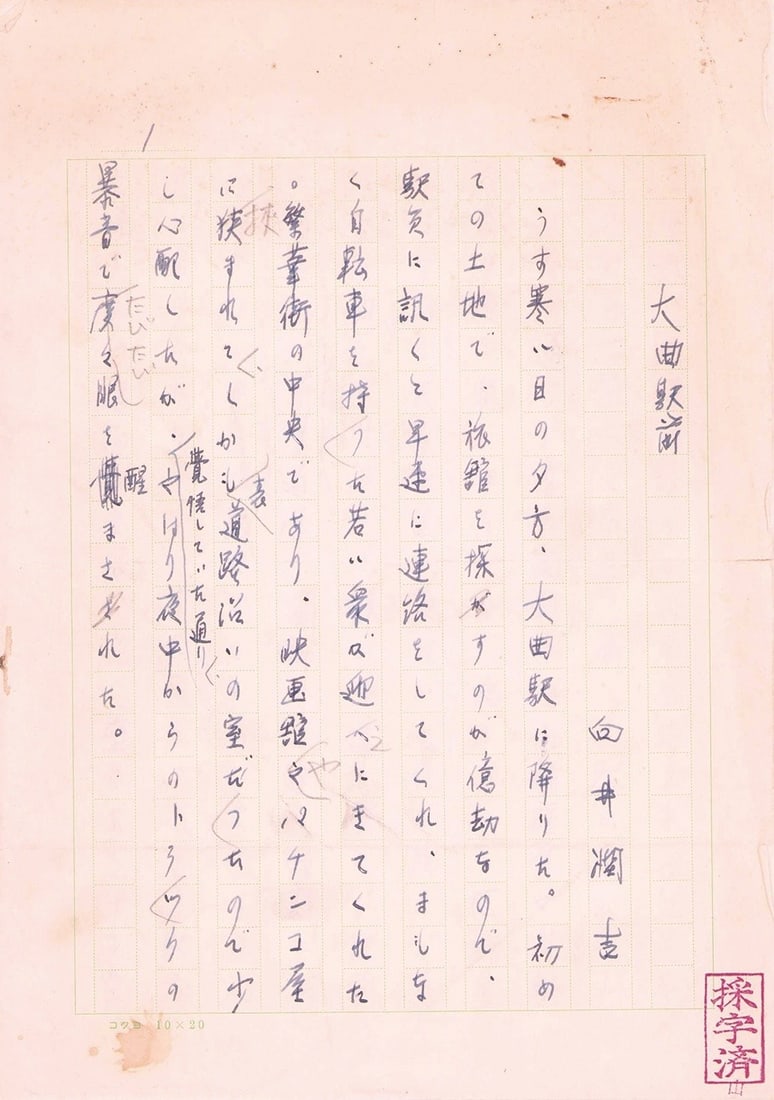 大曲駅前
向井潤吉
うす寒い日の夕方、大曲駅に降りた。初め
ての土地で、旅館を探がすのが億劫なので、
駅員に訊くと早速に連絡をしてくれ、まもな
く自転車を持つた若い衆が迎へにきてくれた
え
。繁華街の中央であり、映画館やパチンコ屋
や
に狭まれてしかも道路沿いの室だつたので少
挾
表
し心配したが、やはり夜中からのトラックの
覚悟していた通り
暴音で度々眼を覚まされた。
たびたび
醒
1
コクヨ 10×20
採字済
山